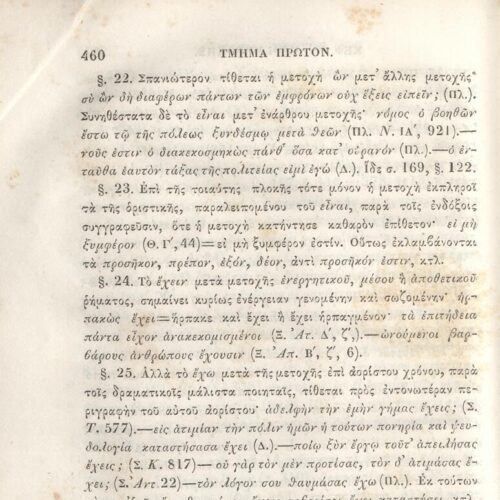 460 ΤΜΗΜΑ ΠΡΩΤΟΝ.
§. 22. Σπανιώτερον τίθεται ἡ μετοχὴ ὢν μετ' ἄλλης μετοχῆς·
σὺ ὢν δὴ διαφέρων πάντων τῶν ἐμφρόνων οὐχ ἕξεις εἰπεῖν; (Πλ.).
Συνηθέστατα δὲ τὸ εἶναι μετ' ἐνάρθρου μετοχῆς· νόμος ὁ βοηθῶν
ἔστω τῷ τῆς πόλεως ξυνδέσμῳ μετὰ θεῶν (Πλ. Ν. ΙΑ', 921).—
νοῦς ἐστιν ὁ διακεκοσμηκὼς πάνθ' ὅσα κατ' οὐρανόν (Πλ.)—ὁ ἐν-
ταῦθα ἑαυτὸν τάξας τῆς πολιτείας εἰμὶ ἐγώ (Δ.). Ἴδε σ. 169, §. 122.
§. 23. Ἐπὶ τῆς τοιαύτης πλοκῆς τότε μόνον ἡ μετοχὴ ἐκπληροῖ
τὰ τῆς ὁριστικῆς, παραλειπομένου τοῦ εἶναι, παρὰ τοῖς ἐνδόξοις
συγγραφεῦσιν, ὅτε ἡ μετοχὴ κατήντησε καθαρὸν ἐπίθετον· εἰ μὴ
ξυμφέρον (Θ. Γ', 44)=εἰ μὴ ξυμφέρον ἐστίν. Οὕτως ἐκλαμβάνονται
τὰ προσῆκον, πρέπον, ἐξόν, δέον, ἀντὶ προσῆκόν ἐστιν, κτλ.
§. 24. Τὸ ἔχειν μετὰ μετοχῆς ἐνεργητικοῦ, μέσου ἢ ἀποθετικοῦ
ῥήματος, σημαίνει κυρίως ἐνέργειαν γενομένην καὶ σωζομένην· ἡρ-
πακὼς ἔχει=ἥρπακε καὶ ἔχει ἢ ἔχει ἡρπαγμένον· τὰ ἐπιτήδεια
πάντα εἶχον ἀνακεκομισμένοι (Ξ. Ἀτ. Δ', ζ',).—ὠνούμενοι βαρ-
βάρους ἀνθρώπους ἔχουσιν (Ξ. Ἀπ. Β', ζ', 6).
§. 25. Ἀλλὰ τὸ ἔχω μετὰ τῆς μετοχῆς ἐπὶ ἀορίστου χρόνου, παρὰ
τοῖς δραματικοῖς μάλιστα ποιηταῖς, τίθεται πρὸς ἐντονωτέραν πε-
ριγραφὴν τοῦ αὐτοῦ ἀορίστου· ἀδελφὴν τὴν ἐμὴν γήμας ἔχεις; (Σ.
Τ. 577).—εἰς ἀτιμίαν τὴν πόλιν ἡμῶν ἡ τούτων πονηρία καὶ ψευ-
δολογία καταστήσασα ἔχει (Δ.).—ποίῳ ξὺν ἔργῳ τοῦτ' ἀπειλήσας
ἔχεις; (Σ. Κ. 817)—οὐ γὰρ τὸν μὲν προτίσας, τὸν δ' ἀτιμάσας ἔ-
χει; (Σ. Ἀντ. 22)—τὸν λόγον σου θαυμάσας ἔχω (Πλ.). Ἐκ τούτων